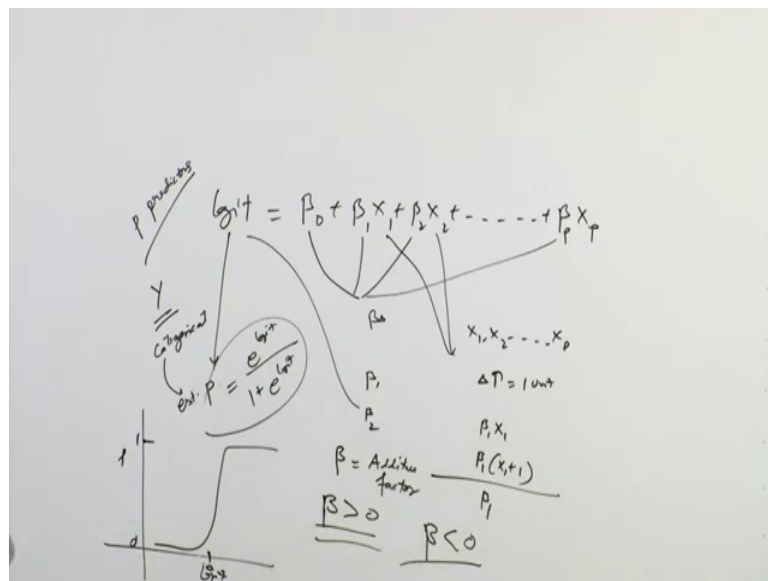 P predictors
logit = β₀ + β₁X₁ + β₂X₂ + - - - - - - + βₚXₚ
Y
Categorical
est. P = e^logit / 1 + e^logit
βs
β₁
β₂
X₁, X₂ - - - - Xₚ
Δ↑ = 1 unit
β₁X₁
β₁(X₁+1)
β₁
β = Additive
factor
β > 0
β < 0
1
P
0
0
logit